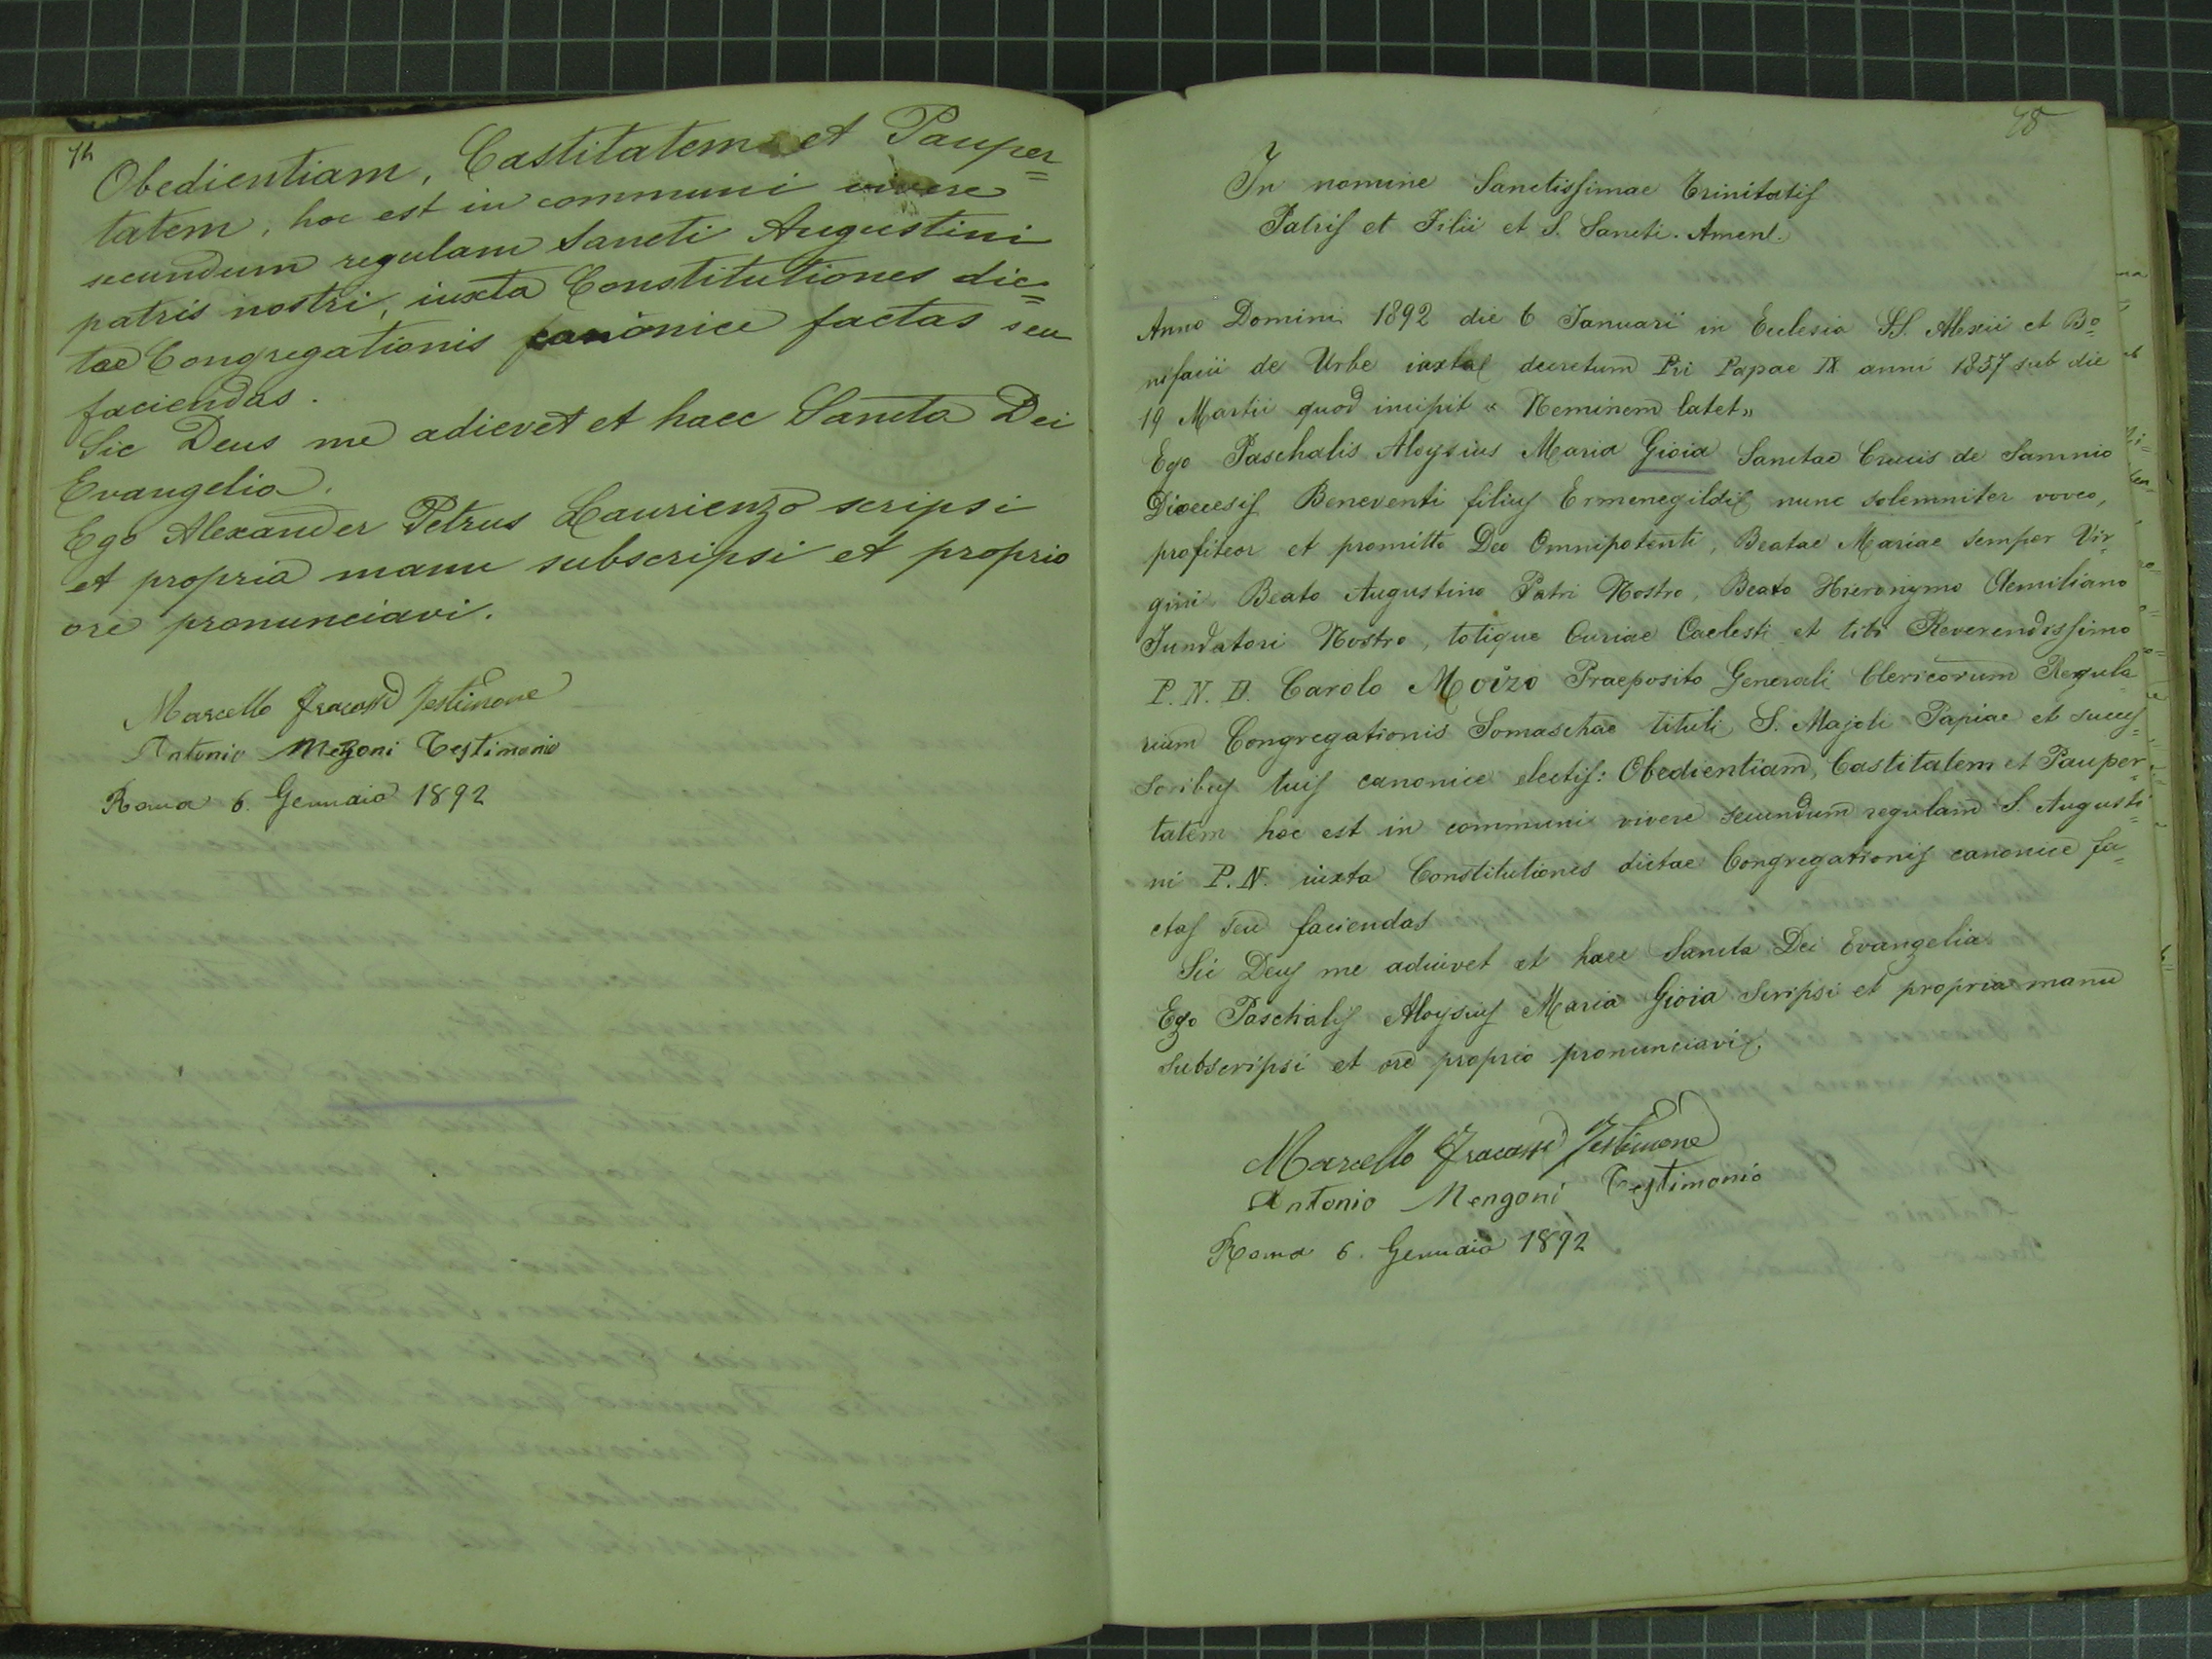 74
Obedientiam, Castitatem et Pauper=
tatem, hoc est in communi vivere
secundum regulam Sancti Augustini
patris nostri, iuxta Constitutiones dic=
tae Congregationis canonice factas seu
faciendas.
Sic Deus me adievet et haec Sancta Dei
Evangelia.
Ego Alexander Petrus Laurienzo scripsi
et propria manu subscripsi et proprio
ore pronunciavi.
Marcello Fracassi Testimone
Antonio Mengoni Testimonio
Roma 6. Gennaio 1892
75
In nomine Sanctissimae Trinitatis
Patris et Filii et S. Sancti. Amen.
Anno Domini 1892 die 6 Ianuarii in Eclesia SS. Alexii et Bo=
nifacii de Urbe iuxta decretum Pii Papae IX anni 1857 sub die
19 Martii quod incipit « Neminem latet»
Ego Paschalis Aloysius Maria Gioia Sanctae Crucis de Samnio
Dioecesis Beneventi filius Ermenegildi nunc solemniter voveo,
profiteor et promitto Deo Omnipotenti, Beatae Mariae semper Vir=
gini Beato Augustino Patri Nostro, Beato Hieronymo Aemiliano
Fundatori Nostro, totique Curiae Caelesti et tibi Reverendissimo
P. N. D. Carolo Moizo Praeposito Generali Clericorum Regula=
rium Congregationis Somaschae tituli S. Majoli Papiae et succes=
soribus tuis canonice electis: Obedientiam, Castitatem et Pauper=
tatem hoc est in communi vivere secundum regulam S. Augusti=
ni P.N. iuxta Constitutiones dictae Congregationis canonice fa=
ctas seu faciendas
Sic Deus me adiuvet et haec Sancta Dei Evangelia
Ego Paschalis Aloysius Maria Gioia scripsi et propria manu
subscripsi et ore proprio pronunciavi.
Marcello Fracassi Testimone
Antonio Mengoni Testimonio
Roma 6. Gennaio 1892